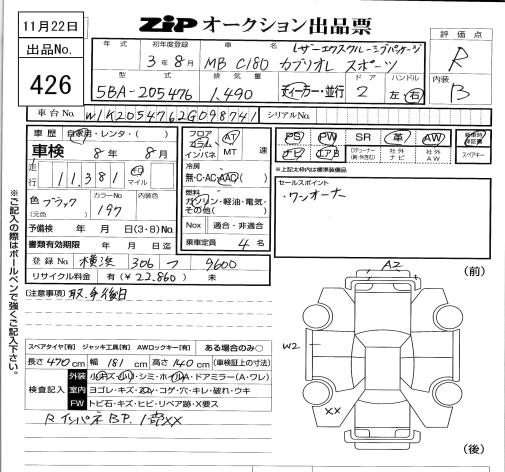 11月22日
出品No.
426
ZiP オークション出品票
評価点
R
内装
B
年式 初年度登録 車名 レザーエクスクルーシブパッケージ
3年8月 MB C180 カブリオレ スポーツ
型式 排気量 ドア ハンドル
5BA-205476 1,490 ディーラー・並行 2 左・右
車台No. W1K2054762G098741 シリアルNo.
車歴 自家用・レンタ・( )
車検 8年 8月
走行 11,381 キロ マイル
色 ブラック カラーNo 197 内装色
(元色)
予備検 年 月 日(3・8)No.
書類有効期限 年 月 日迄
登録No. 横浜 306 つ 9600
リサイクル料金 有(¥22,860) 未
フロア コラム インパネ AT MT 速
冷房
無・C・AC・AAC
燃料
ガソリン・軽油・電気・その他( )
Nox 適合・非適合
乗車定員 4名
PS PW SR 革 AW 新車時保証書
ナビ エアB 社外ナビ 社外AW スペアキー
※上記太枠内は標準装備品
セールスポイント
・ワンオーナー
(注意事項) 取、予後日
スペアタイヤ[有] ジャッキ工具[有] AWロックキー[有] ある場合のみ○
長さ470(cm) 幅181(cm) 高さ140(cm) (車検証上の寸法)
検査記入
外装 小キズ・小凹・シミ・ホイル・A・ドアミラー(A・ワレ)
室内 ヨゴレ・キズ・スレ・コゲ・穴・キレ・破れ・ウキ
FW トビ石・キズ・ヒビ・リペア跡・X要ス
(前)
A2
W2
XX
(後)
※ご記入の際はボールペンで強くご記入下さい。